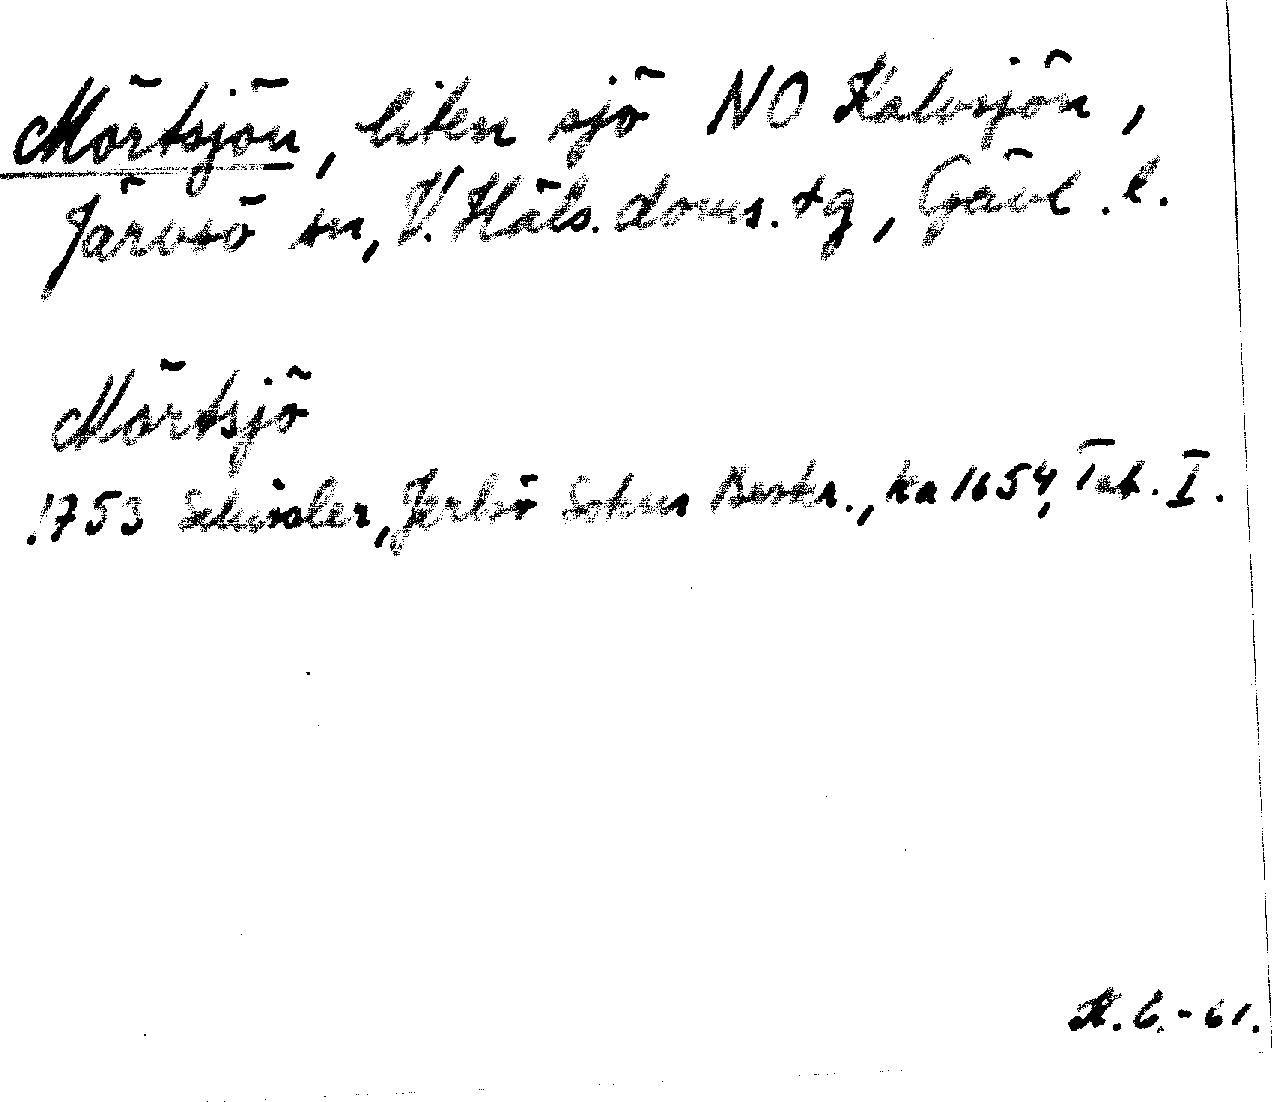 Mörtsjön, liten sjö NO Kalvsjön,
Järvsö sn, V. Häls. doms. tg, Gävl. l.
Mörtsjö
1753 Schissler, Jerlsö Sokns Beskr., ka 1654, Tab. I.
-61.